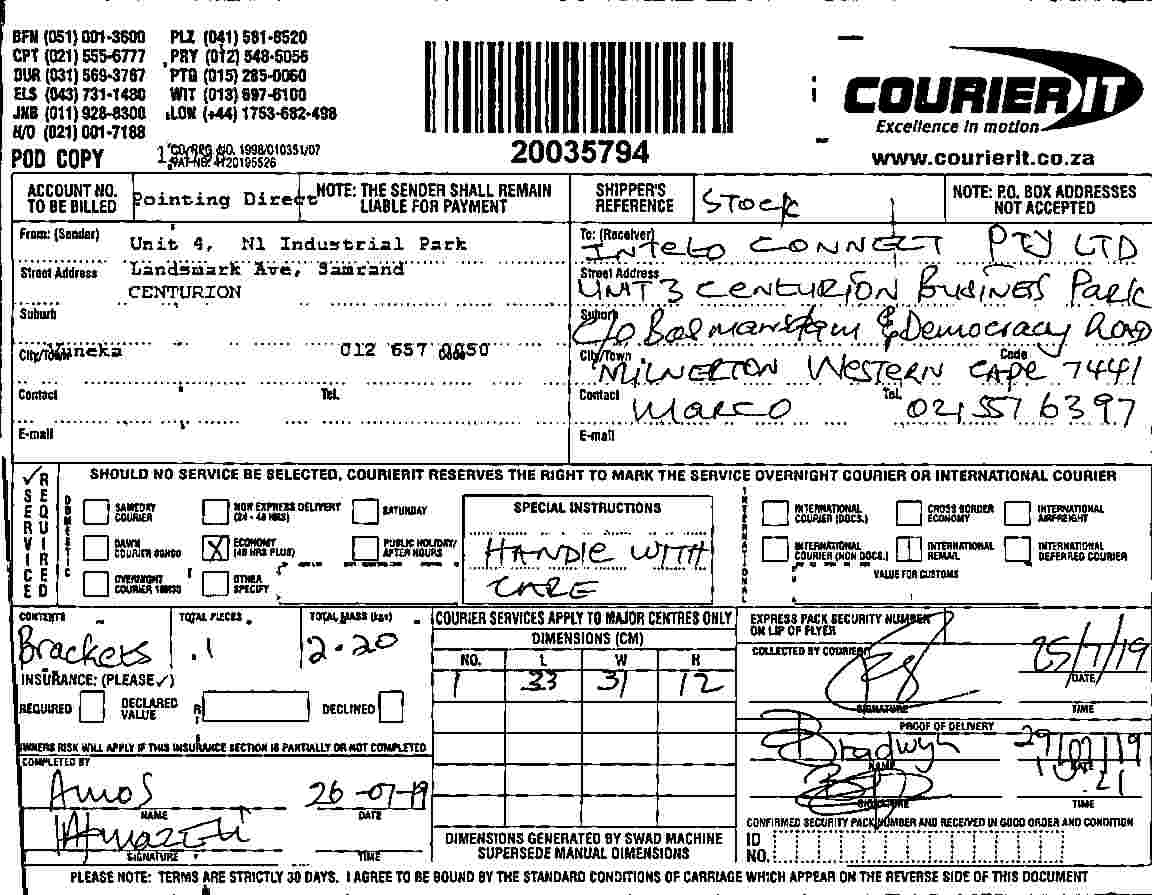 BFN (051) 001-3600 PLZ (041) 581-8520
CPT (021) 555-6777 PRY (012) 548-5056
DUR (031) 569-3787 PTG (015) 285-0060
ELS (043) 731-1480 WIT (013) 697-6100
JNB (011) 928-8300 LON (+44) 1753-682-498
H/O (021) 001-7188
CO/REG NO. 1998/010351/07
POD COPY
20035794
COURIERIT
Excellence in motion
www.courierit.co.za
ACCOUNT NO. TO BE BILLED Pointing Direct NOTE: THE SENDER SHALL REMAIN LIABLE FOR PAYMENT
SHIPPER'S REFERENCE Stock NOTE: P.O. BOX ADDRESSES NOT ACCEPTED
From: (Sender) Unit 4, N1 Industrial Park
Street Address Landsmark Ave, Samrand
CENTURION
Suburb
City/Town 012 657 0050
Contact Tel.
E-mail
To: (Receiver) INTELO CONNECT PTY LTD
Street Address UNIT 3 CENTURION BUSINESS PARK
Suburb & Democracy ROAD
City/Town MILNERTON WESTERN CAPE Code 7441
Contact MARCO Tel. 021 557 6397
E-mail
SERVICE REQUIRED
SHOULD NO SERVICE BE SELECTED, COURIERIT RESERVES THE RIGHT TO MARK THE SERVICE OVERNIGHT COURIER OR INTERNATIONAL COURIER
DOMESTIC
SAMEDAY COURIER
NON EXPRESS DELIVERY (24 - 48 HRS)
SATURDAY
DAWN COURIER
X ECONOMY (48 HRS PLUS)
PUBLIC HOLIDAY/ AFTER HOURS
OVERNIGHT COURIER
OTHER SPECIFY
SPECIAL INSTRUCTIONS
HANDLE WITH
CARE
INTERNATIONAL
INTERNATIONAL COURIER (DOCS.)
CROSS BORDER ECONOMY
INTERNATIONAL AIRFREIGHT
INTERNATIONAL COURIER (NON DOCS.)
INTERNATIONAL REMAIL
INTERNATIONAL DEFERRED COURIER
VALUE FOR CUSTOMS
CONTENTS TOTAL PIECES TOTAL MASS (kgs)
Brackets 1 2.20
INSURANCE: (PLEASE ✓)
REQUIRED DECLARED VALUE R DECLINED
OWNERS RISK WILL APPLY IF THIS INSURANCE SECTION IS PARTIALLY OR NOT COMPLETED
COMPLETED BY
Amos 26-07-19
NAME DATE
SIGNATURE TIME
COURIER SERVICES APPLY TO MAJOR CENTRES ONLY
DIMENSIONS (CM)
NO. L W H
1 33 31 12
DIMENSIONS GENERATED BY SWAD MACHINE
SUPERSEDE MANUAL DIMENSIONS
EXPRESS PACK SECURITY NUMBER
ON LIP OF FLYER
COLLECTED BY COURIER
25/7/19
DATE
SIGNATURE TIME
PROOF OF DELIVERY
Bradwyn
NAME DATE
SIGNATURE TIME
CONFIRMED SECURITY PACK NUMBER AND RECEIVED IN GOOD ORDER AND CONDITION
ID NO.
PLEASE NOTE: TERMS ARE STRICTLY 30 DAYS. I AGREE TO BE BOUND BY THE STANDARD CONDITIONS OF CARRIAGE WHICH APPEAR ON THE REVERSE SIDE OF THIS DOCUMENT